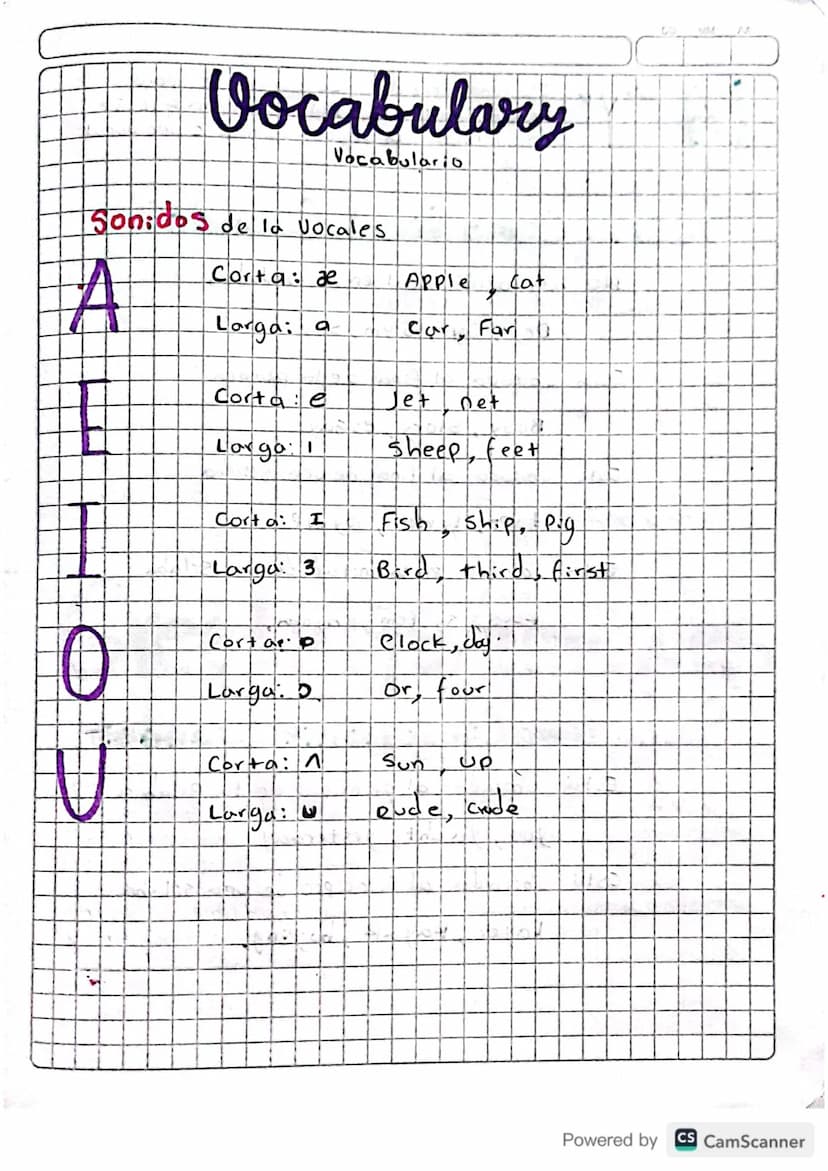 Vocabulary
Vocabulario
Sonidos de la Vocales
A
Corta: æ Apple, Cat
Larga: a Car, Far
E
Corta: e Jet, net
Larga: i Sheep, feet
I
Corta: I Fish, ship, pig
Larga: 3 Bird, third, first
O
Corta: Clock,
Larga: ɔ Or, four
U
Corta: ʌ Sun, up
Larga: u crude
Powered by CS CamScanner